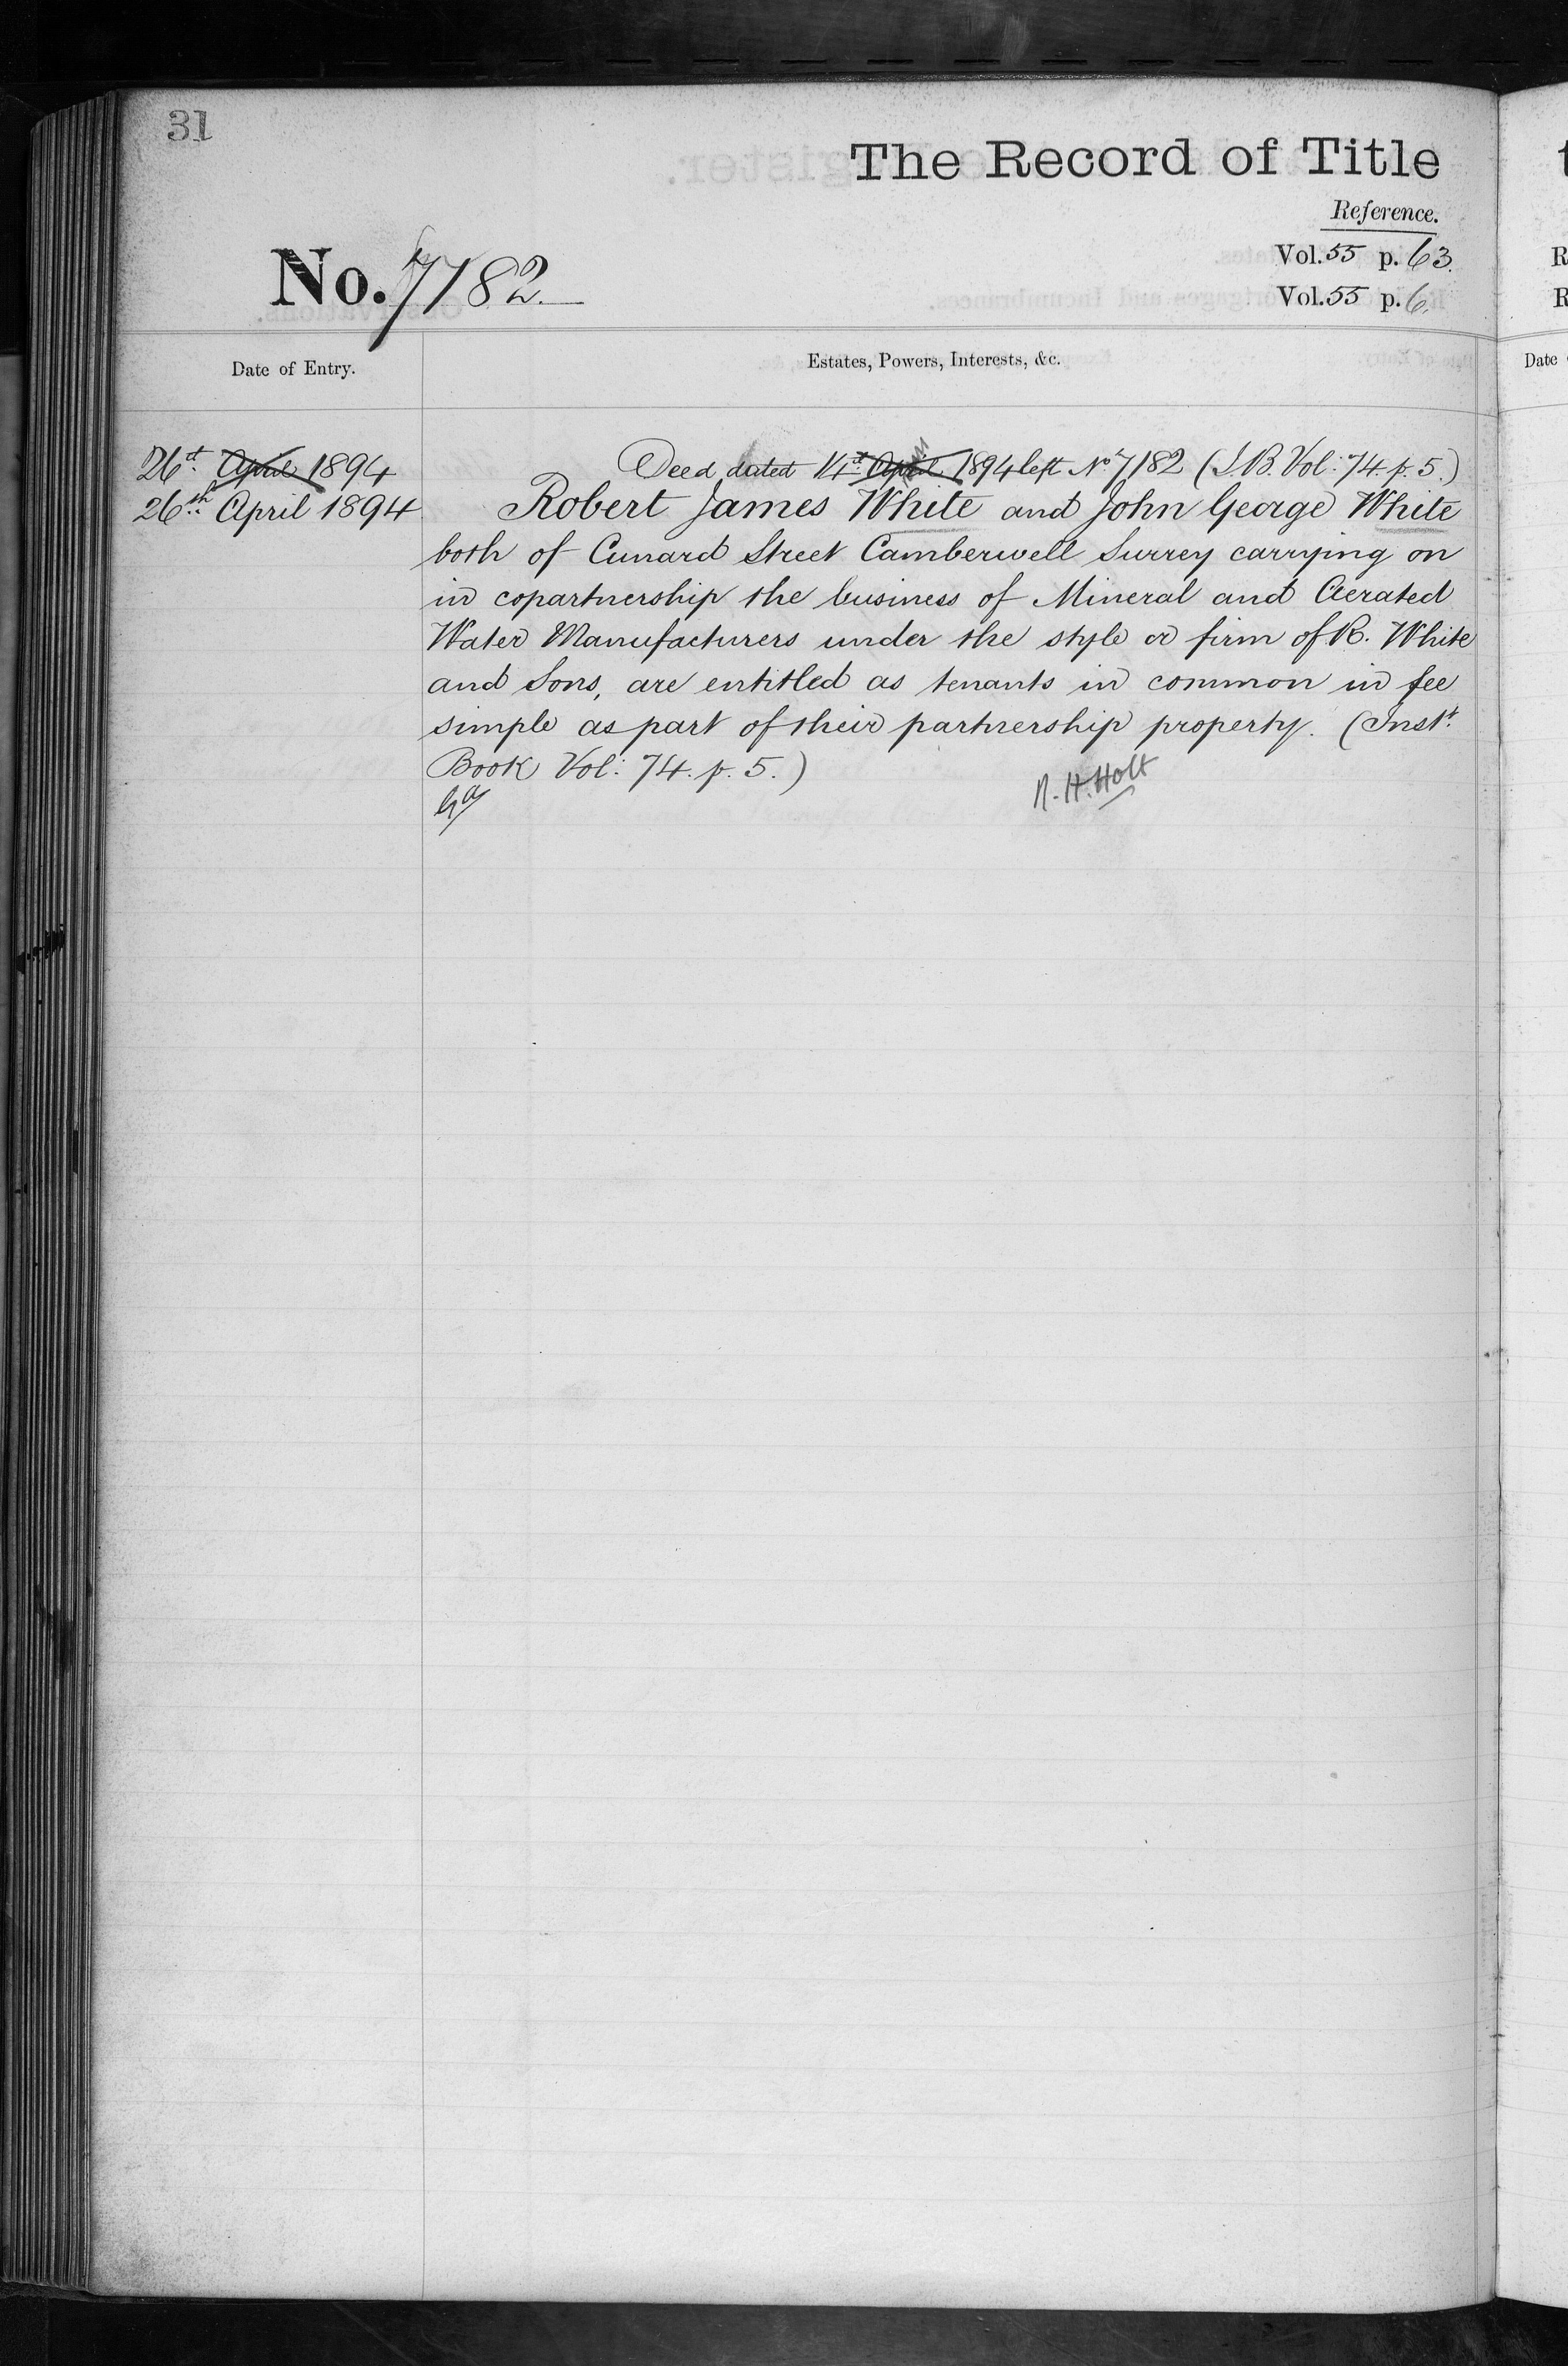 31
The Record of Title
Reference.
No. 7182.
Vol. 55 p. 63.
Vol. 55 p. 6.
Date of Entry.
Estates, Powers, Interests, &c.
26st April 1894
Deed dated 1894 left No 7182 (I.B. Vol: 74. p. 5.)
26th April 1894
Robert James White and John George White
both of Cunard Street Camberwell Surrey carrying on
in copartnership the business of Mineral and Aerated
Water Manufacturers under the style or firm of R. White
and Sons, are entitled as tenants in common in fee
simple as part of their partnership property. (Inst.
Book Vol: 74. p. 5.)
R. H. Holt
Date